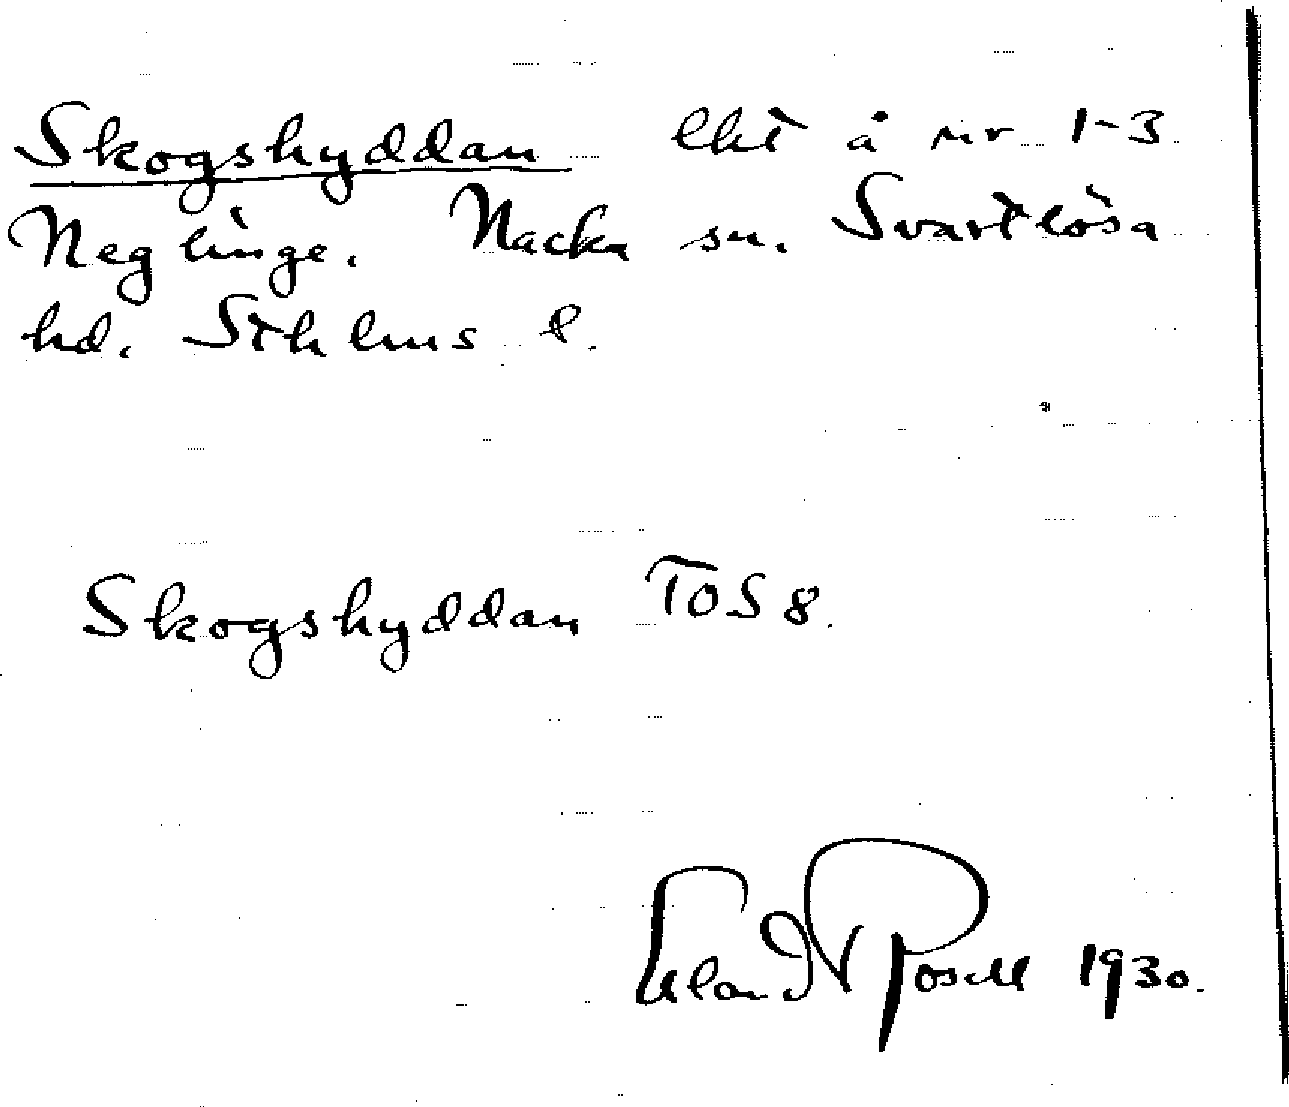 Skogshyddan lht å nr 1-3
Neglinge. Nacka sn. Svartlösa
hd. Sthlms l.
Skogshyddan TOS 8.
1930.